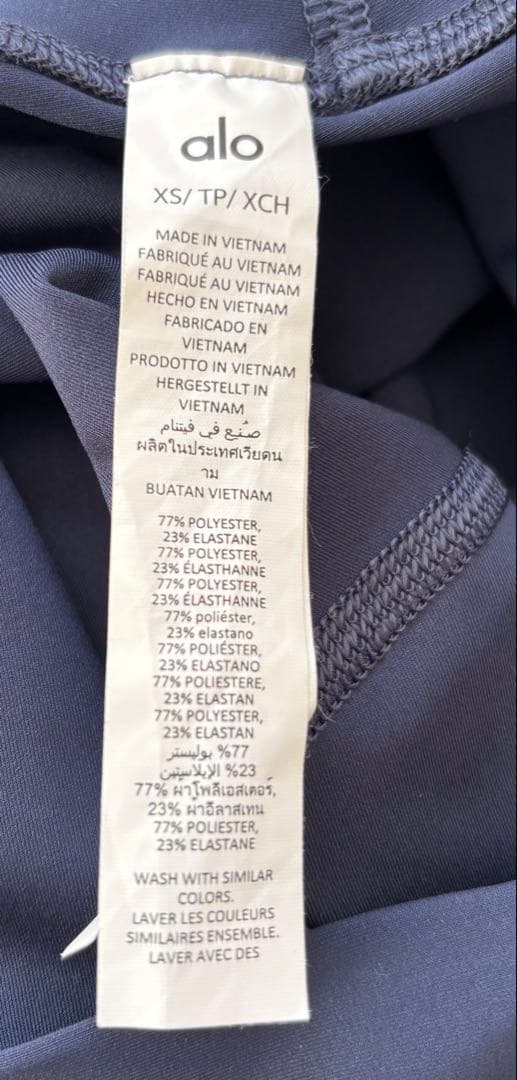 alo
XS/ TP/ XCH
MADE IN VIETNAM
FABRIQUÉ AU VIETNAM
FABRIQUÉ AU VIETNAM
HECHO EN VIETNAM
FABRICADO EN
VIETNAM
PRODOTTO IN VIETNAM
HERGESTELLT IN
VIETNAM
صُنِع في فيتنام
ผลิตในประเทศเวียดน
าม
BUATAN VIETNAM
77% POLYESTER,
23% ELASTANE
77% POLYESTER,
23% ÉLASTHANNE
77% POLYESTER,
23% ÉLASTHANNE
77% poliéster,
23% elastano
77% POLIÉSTER,
23% ELASTANO
77% POLIESTERE,
23% ELASTAN
77% POLYESTER,
23% ELASTAN
77% بوليستر
23% الإيلاستين
77% ผ้าโพลีเอสเตอร์,
23% ผ้าอีลาสเทน
77% POLIESTER,
23% ELASTANE
WASH WITH SIMILAR
COLORS.
LAVER LES COULEURS
SIMILAIRES ENSEMBLE.
LAVER AVEC DES